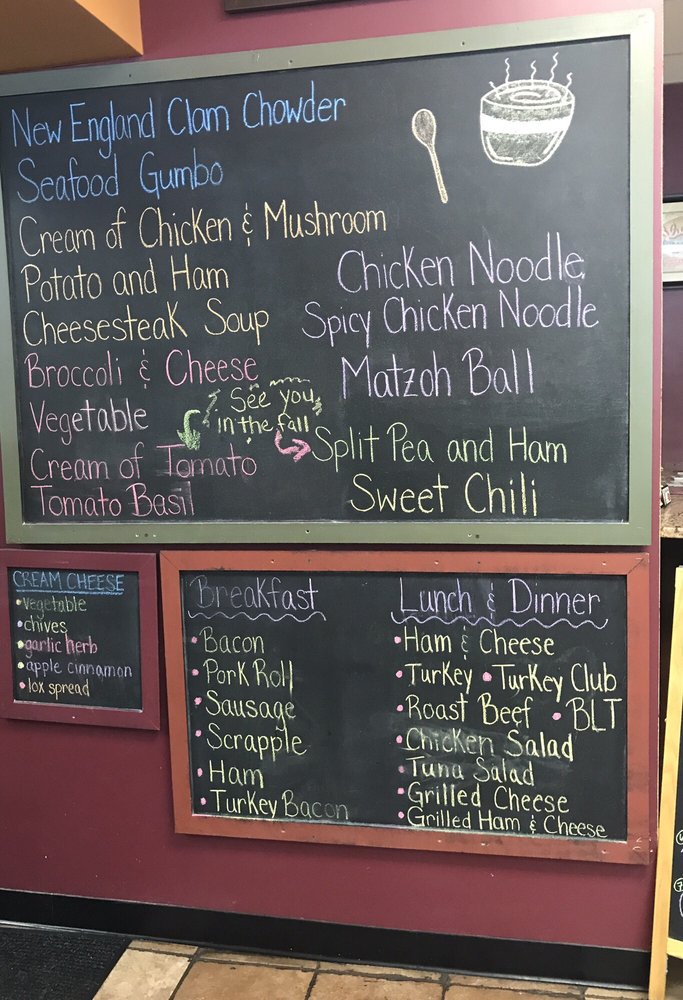 New England Clam Chowder
Seafood Gumbo
Cream of Chicken & Mushroom
Potato and Ham
Cheesesteak Soup
Broccoli & Cheese
Vegetable
Cream of Tomato
Tomato Basil
See you
in the fall
Chicken Noodle
Spicy Chicken Noodle
Matzoh Ball
Split Pea and Ham
Sweet Chili
CREAM CHEESE
• vegetable
• chives
• garlic herb
• apple cinnamon
• lox spread
Breakfast
• Bacon
• Pork Roll
• Sausage
• Scrapple
• Ham
• Turkey Bacon
Lunch & Dinner
• Ham & Cheese
• Turkey • Turkey Club
• Roast Beef • BLT
• Chicken Salad
• Tuna Salad
• Grilled Cheese
• Grilled Ham & Cheese